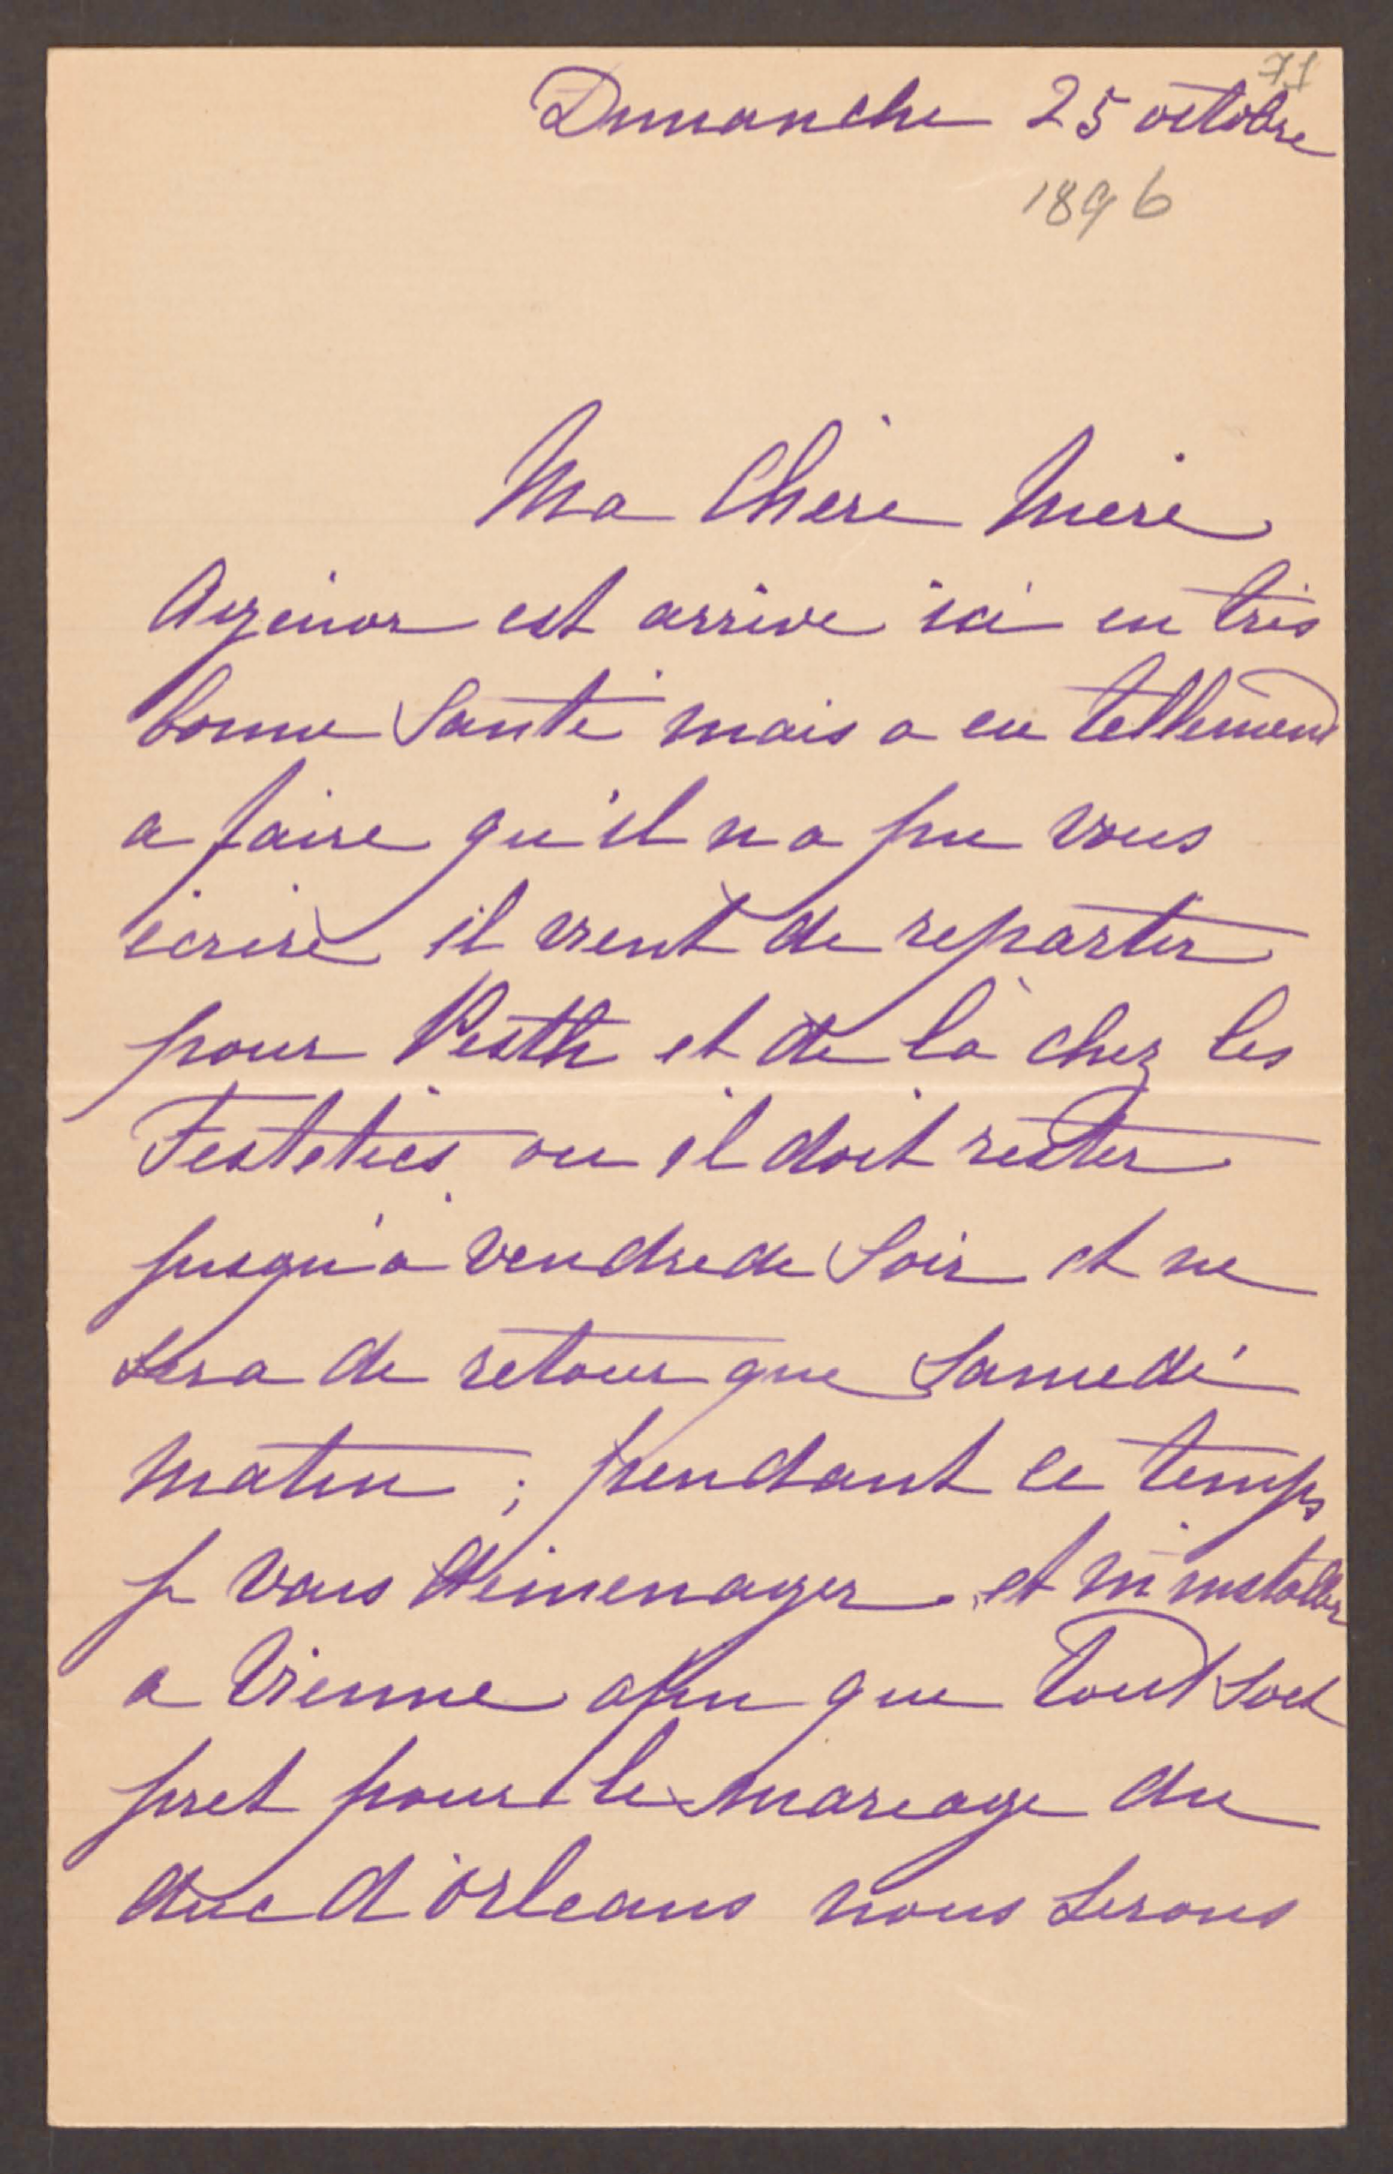 71
Dimanche 25 octobre
1896
Ma Chère Mère
Agénor est arrivé ici en très
bonne Santé mais a eu tellement
a faire qu'il n a pu vous
écrire il vient de repartir
pour Pesth et de là chez les
Festetics ou il doit rester
jusqu'a vendredi Soir et ne
sera de retour que Samedi
matin ; pendant ce temps
je vais déménager et m'installer
a Vienne afin que tout soit
pret pour le mariage du
duc d'Orleans nous serons